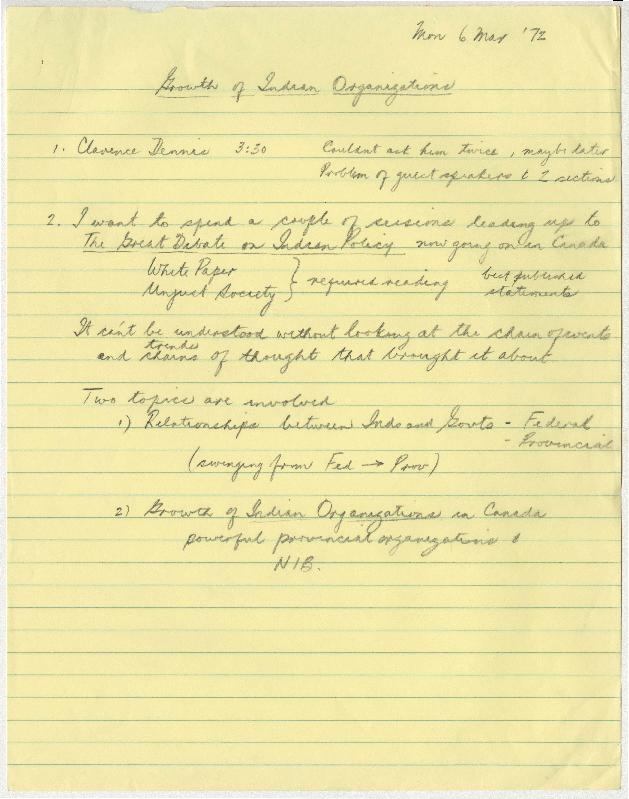 Mon 6 Mar '72
Growth of Indian Organizations
1. Clarence Dennis 3:30 Couldnt ask him twice, maybe later
Problem of guest speakers & 2 sections
2. I want to spend a couple of sessions leading up to
The Great Debate on Indian Policy now going on in Canada
White Paper
Unjust Society } required reading best published statements
It can't be understood without looking at the chain of events
trends
and chains of thought that brought it about
Two topics are involved
1) Relationships between Inds and Govts - Federal
- Provincial
(swinging from Fed → Prov)
2) Growth of Indian Organizations in Canada
powerful provincial organizations &
NIB.